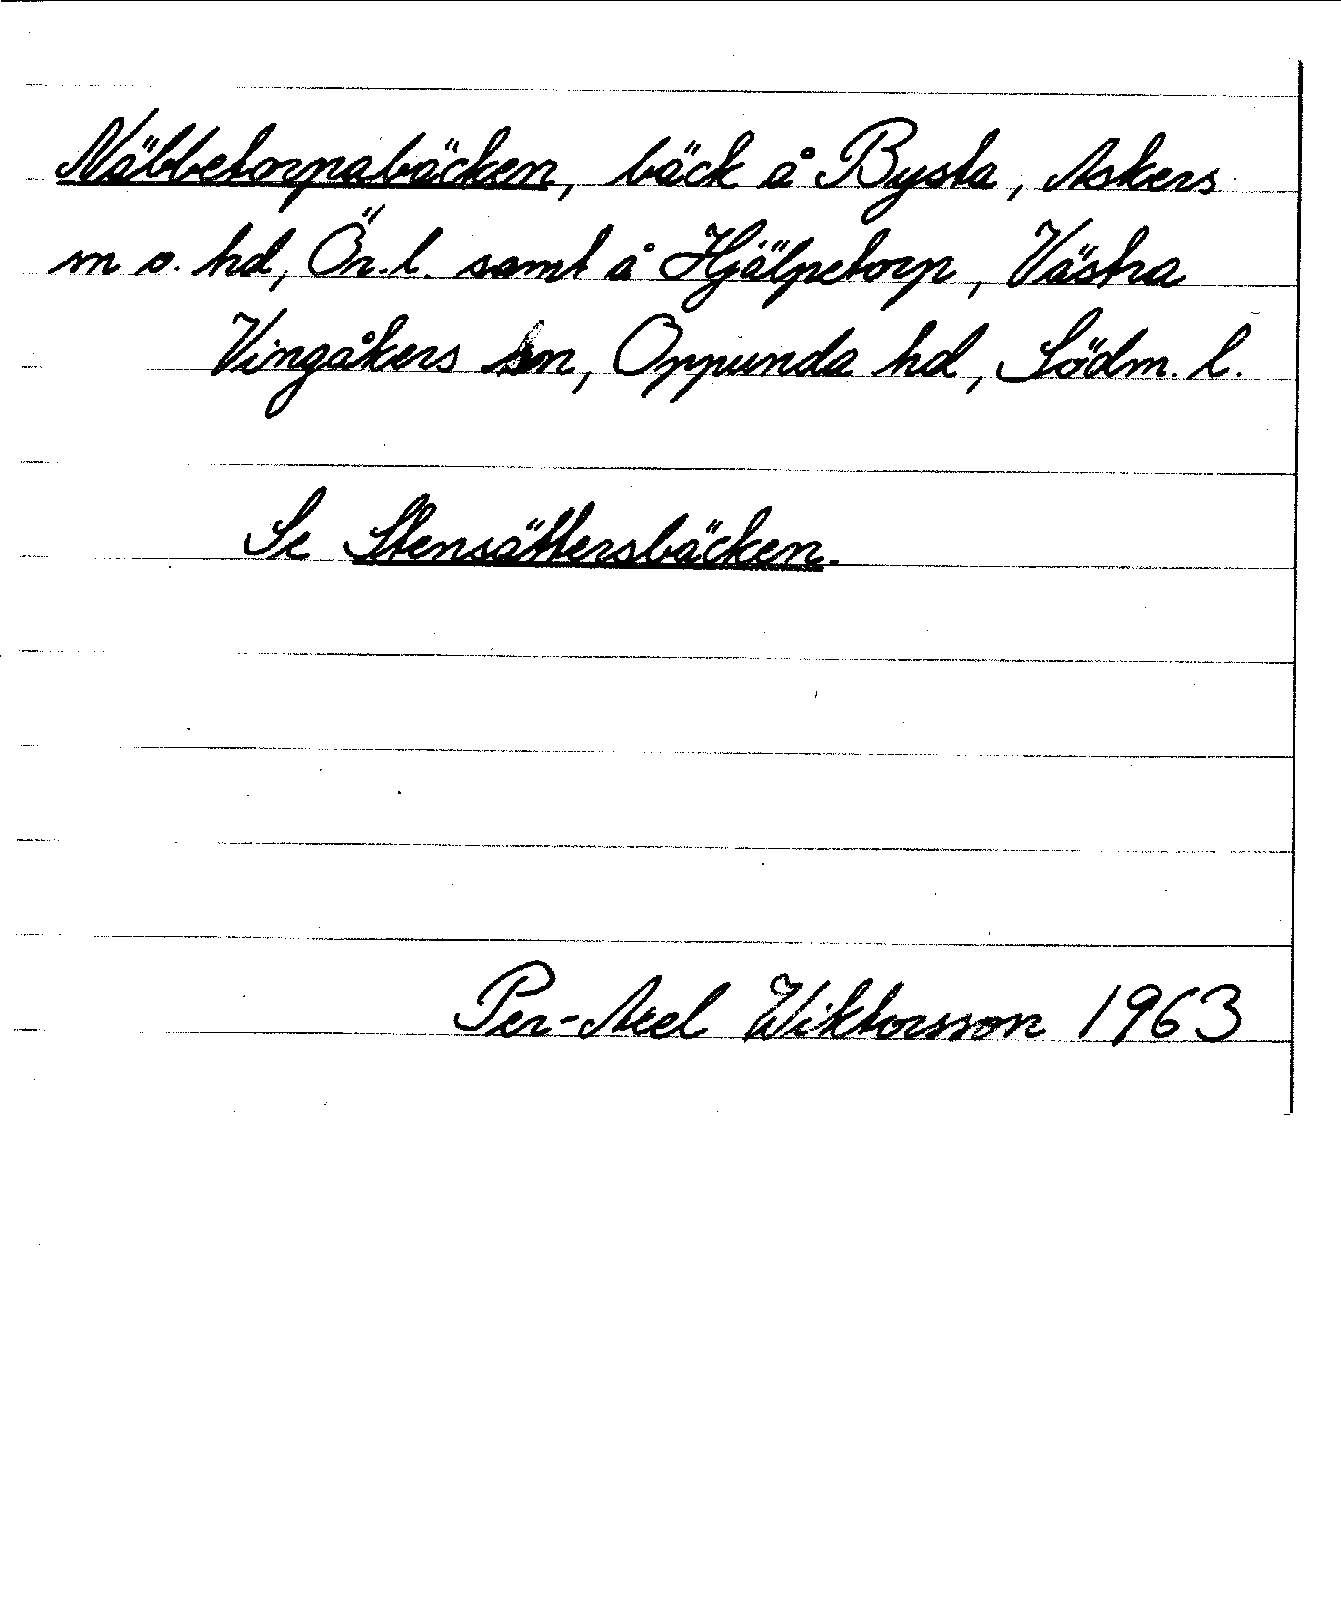 Näbbetorpabäcken, bäck å Bysta, Askers
sn o. hd, Ör.l. samt å Hjälpetorp, Västra
Vingåkers sn, Oppunda hd, Södm. l.
Se Stensättersbäcken.
Per-Axel Wiktorsson 1963